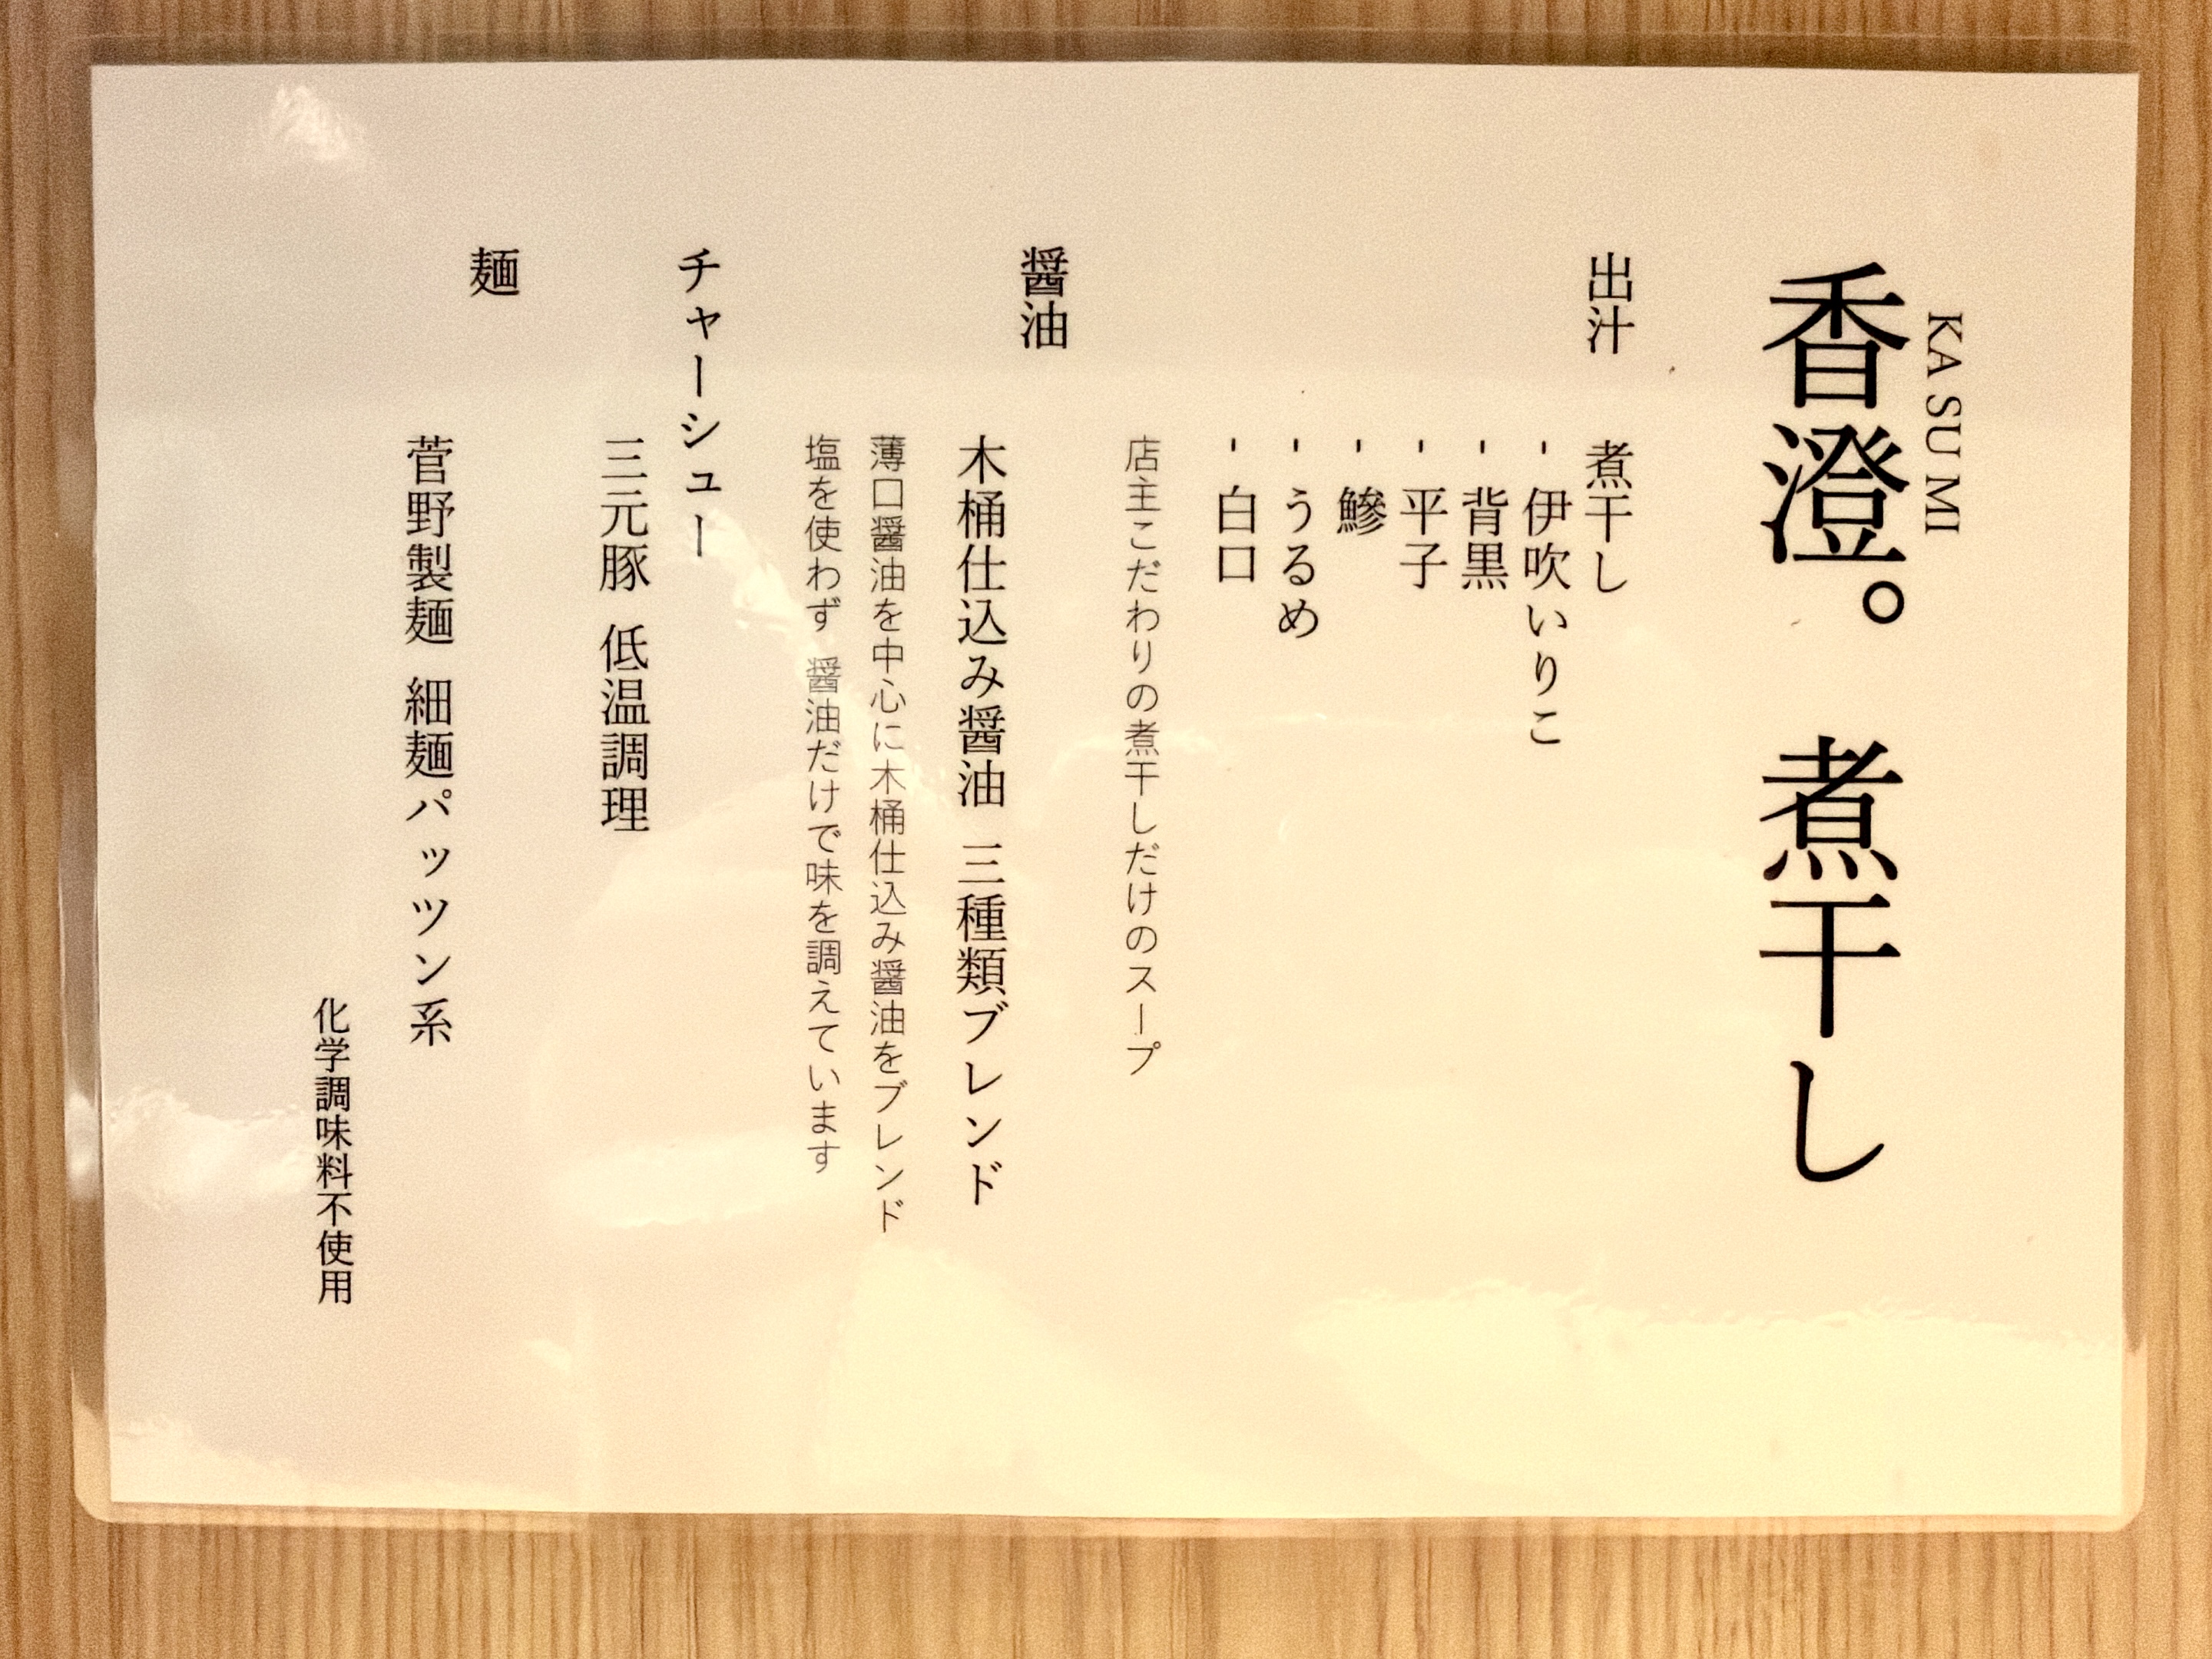 KASUMI
香澄。 煮干し
出汁 煮干し
- 伊吹いりこ
- 背黒
- 平子
- 鰺
- うるめ
- 白口
店主こだわりの煮干しだけのスープ
醤油
木桶仕込み醤油 三種類ブレンド
薄口醤油を中心に木桶仕込み醤油をブレンド
塩を使わず 醤油だけで味を調えています
チャーシュー
三元豚 低温調理
麺
菅野製麺 細麺パッツン系
化学調味料不使用